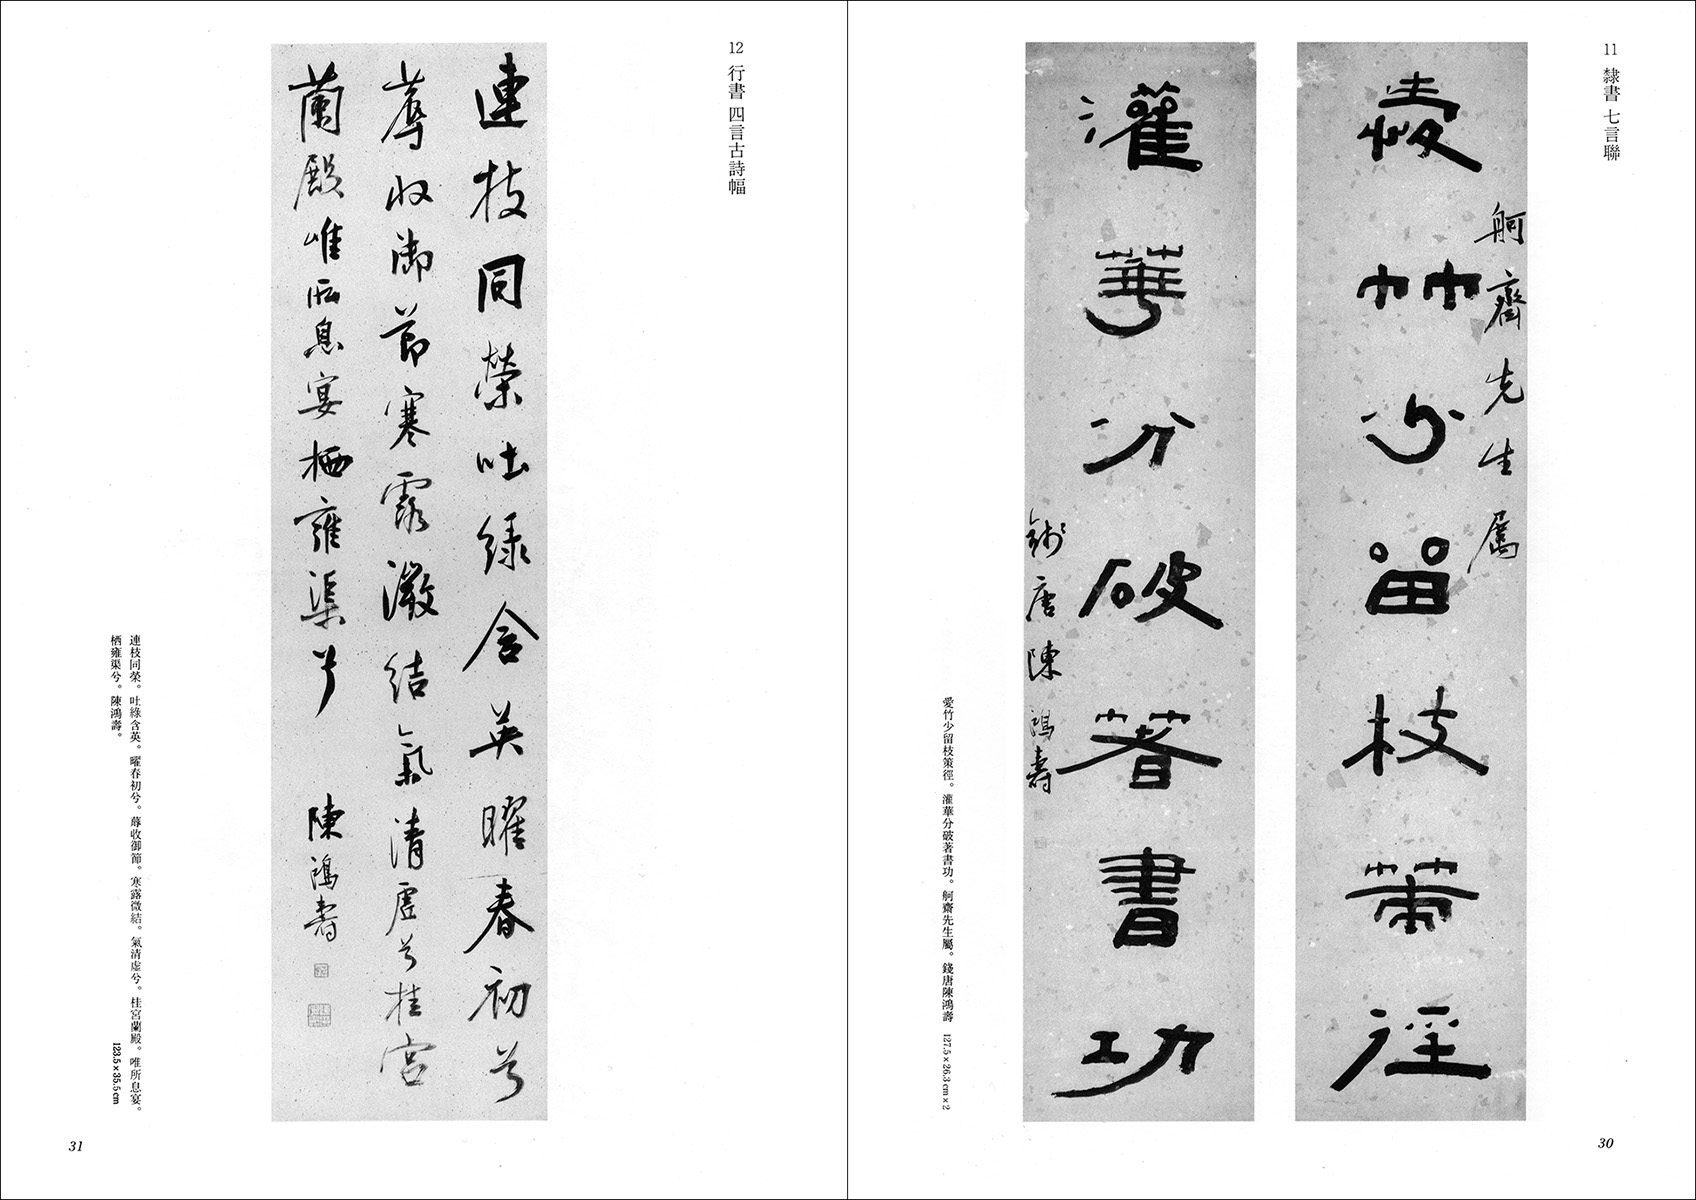 11 隸書 七言聯
舸齋先生屬
愛竹少留枝策徑
灌華分破著書功
錢唐陳鴻壽
愛竹少留枝策徑。灌華分破著書功。舸齋先生屬。錢唐陳鴻壽 127.5×26.3cm×2
30
12 行書 四言古詩幅
連枝同榮吐綠含英曜春初兮
蓐收御節寒露溦結氣清虛兮桂宮
蘭殿唯所息宴栖雍渠兮 陳鴻壽
連枝同榮。吐綠含英。曜春初兮。蓐收御節。寒露微結。氣清虛兮。桂宮蘭殿。唯所息宴。
栖雍渠兮。陳鴻壽。 123.5×35.5cm
31